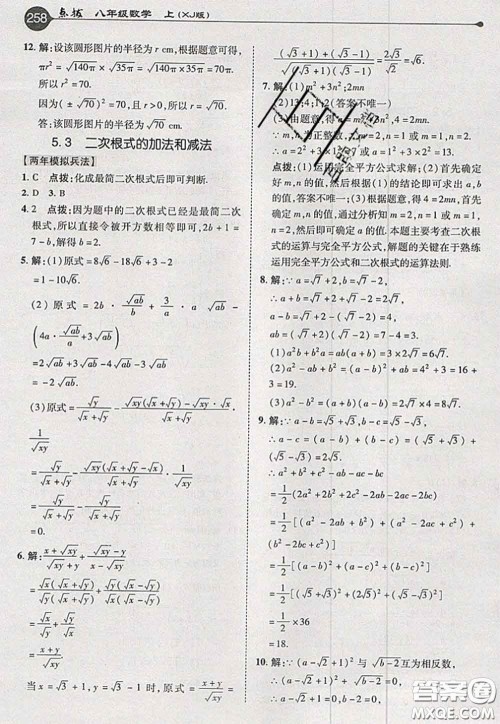 258 点拨 八年级数学 上(XJ版)
12. 解:设该圆形图片的半径为 r cm,根据题意可得,
πr² = √140π × √35π = √140π×35π = 70π.
所以 r² = 70.
因为(±√70)² = 70,且 r>0,所以 r = √70.
所以该圆形图片的半径为 √70 cm.
5.3 二次根式的加法和减法
【两年模拟兵法】
1. C 点拨:化成最简二次根式后即可判断.
2. D 3. B
4. 2 点拨:因为题中的二次根式已经是最简二次
根式,所以直接令被开方数相等即可,即 2b+1
=7-b,解得 b=2.
5. 解:(1)原式 = 8√6 - 18√6 + 3√6
= 1 - 10√6.
(2)原式 = 2b · √ab/b + 3/a · a√ab -
(4a · √ab/a + 3√ab)
= 2√ab + 3√ab - 4√ab - 3√ab
= -2√ab.
(3)原式 = (√y/(√x+√y) - √xy/(√x(√x+√y))) ·
1/√xy
= √y/(√x+√y) - √xy(√x+√y-√x)/(√x+√y) · 1/√xy
= √y/(√x+√y) - √y/(√x+√y)
= 0.
6. 解:(x+√xy)/(√xy+y) + (√xy-y)/(x-√xy)
= √x(√x+√y)/√y(√x+√y) + √y(√x-√y)/√x(√x-√y)
= √x/√y + √y/√x
= (x+y)/√xy.
当 x=√3+1,y=√3-1 时,
(√3+1+√3-1)/√(√3+1)(√3-1) = 2√3/√2 = √6.
7. 解:(1)m²+3n²;2mn
(2)13;4;1;2(答案不唯一)
(3)由题意,得 a=m²+3n²,4=2mn,
∵ m,n为正整数,∴ m=2,n=1或m=1,n=2.
∴ a=2²+3×1²=7或a=1²+3×2²=13.
点拨:(1)利用完全平方公式求解.(2)先确定好
m,n的值,然后根据(1)的结论即可求出a,b
的值.(3)根据题意,得 a=m²+3n²,4=2mn,
然后确定m,n的值.本题主要考查二次根式
的运算与完全平方公式,解题的关键在于熟练
运用完全平方公式和二次根式的运算法则.
8. 解:∵ a=√7+2,b=√7-2,
∴ a+b=√7+2+√7-2=2√7,
a-b=√7+2-√7+2=4,
ab=(√7+2)(√7-2)=3.
(1)a²b+ab²=ab(a+b)=3×2√7=6√7.
(2)a²-b²=(a+b)(a-b)=2√7×4=8√7.
(3)a²-ab+b²=(a-b)²+ab=4²+3=16+
3=19.
9. 解:∵ a-b=√5+√3,b-c=√5-√3,
∴ a-c=(a-b)+(b-c)=(√5+√3)+
(√5-√3)=2√5.
∴ a²+b²+c²-ab-bc-ac
=1/2(2a²+2b²+2c²-2ab-2bc-2ac)
=1/2(a²-2ab+b²+b²-2bc+c²+a²-2ac+c²)
=1/2[(a-b)²+(b-c)²+(a-c)²]
=1/2[(√5+√3)²+(√5-√3)²+(2√5)²]
=1/2×36
=18.
10. 解:∵(a-√2+1)²与√b-2互为相反数,
∴(a-√2+1)²+√b-2=0.
答案圈
MXQE.COM